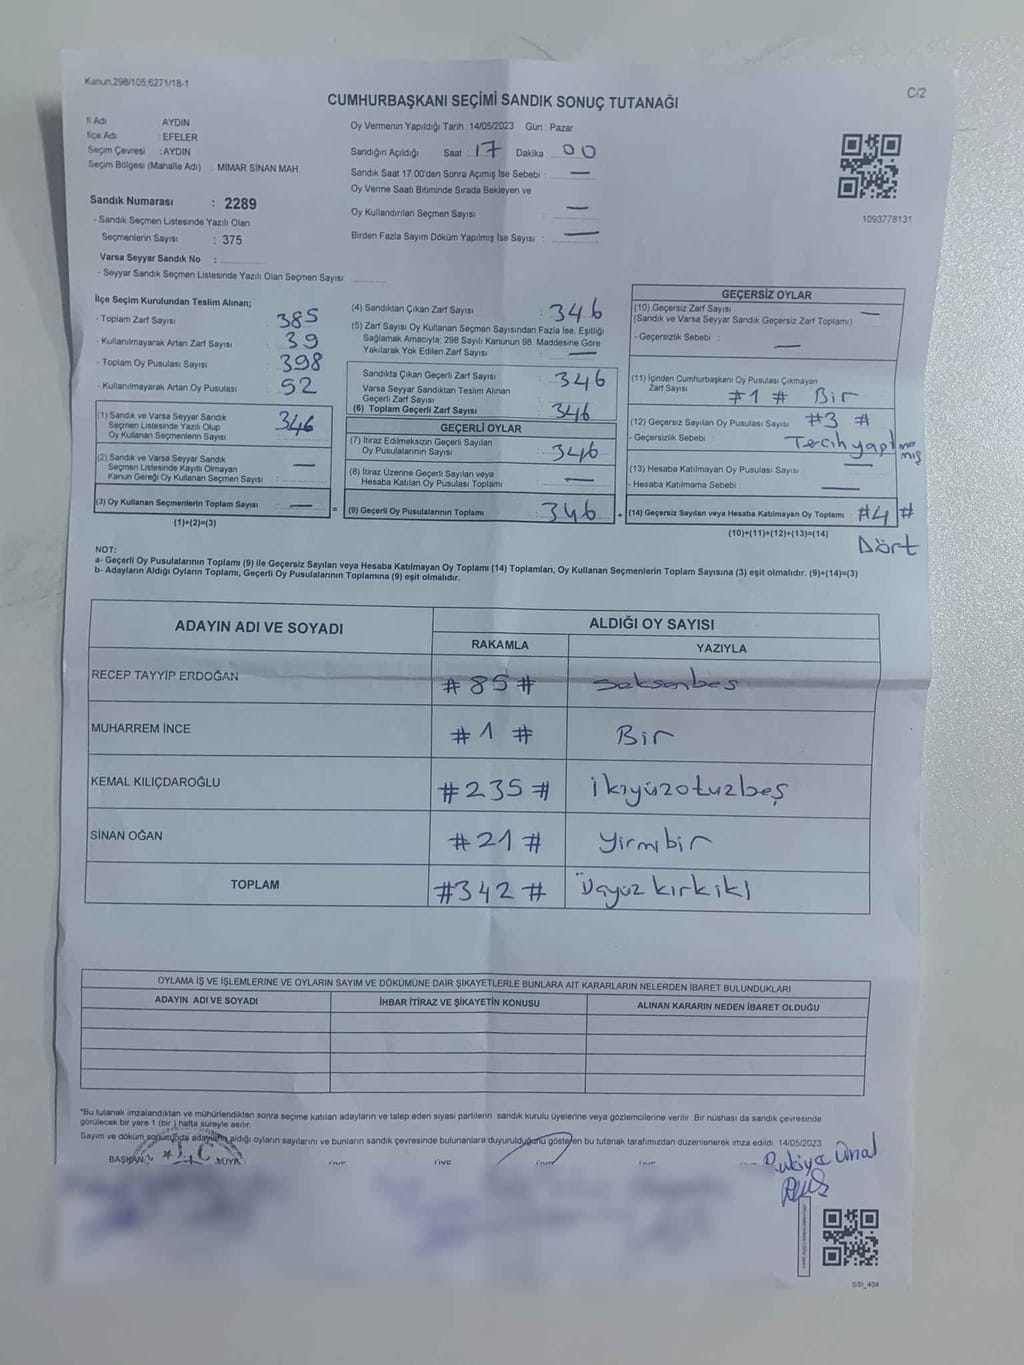 Kanun;298/105;6271/18-1
C/2
CUMHURBAŞKANI SEÇİMİ SANDIK SONUÇ TUTANAĞI
İl Adı AYDIN
İlçe Adı : EFELER
Seçim Çevresi : AYDIN
Seçim Bölgesi (Mahalle Adı) : MİMAR SİNAN MAH.
Oy Vermenin Yapıldığı Tarih : 14/05/2023 Gün : Pazar
Sandığın Açıldığı Saat : 17 Dakika : 00
Sandık Saat 17.00'den Sonra Açımış İse Sebebi : —
Oy Verme Saati Bitiminde Sırada Bekleyen ve
Oy Kullandırılan Seçmen Sayısı : —
Birden Fazla Sayım Döküm Yapılmış İse Sayısı : —
1093778131
Sandık Numarası : 2289
- Sandık Seçmen Listesinde Yazılı Olan
Seçmenlerin Sayısı : 375
Varsa Seyyar Sandık No :
- Seyyar Sandık Seçmen Listesinde Yazılı Olan Seçmen Sayısı:
İlçe Seçim Kurulundan Teslim Alınan;
- Toplam Zarf Sayısı : 385
- Kullanılmayarak Artan Zarf Sayısı : 39
- Toplam Oy Pusulası Sayısı : 398
- Kullanılmayarak Artan Oy Pusulası : 52
(1) Sandık ve Varsa Seyyar Sandık
Seçmen Listesinde Yazılı Olup
Oy Kulanan Seçmenlerin Sayısı : 346
(2) Sandık ve Varsa Seyyar Sandık
Seçmen Listesinde Kayıtlı Olmayan
Kanun Gereği Oy Kullanan Seçmen Sayısı : —
(3) Oy Kullanan Seçmenlerin Toplam Sayısı : — =
(1)+(2)=(3)
(4) Sandıktan Çıkan Zarf Sayısı : 346
(5) Zarf Sayısı Oy Kullanan Seçmen Sayısından Fazla İse, Eşitliği
Sağlamak Amacıyla; 298 Sayılı Kanunun 98. Maddesine Göre
Yakılarak Yok Edilen Zarf Sayısı : —
Sandıkta Çıkan Geçerli Zarf Sayısı : 346
Varsa Seyyar Sandıktan Teslim Alınan
Geçerli Zarf Sayısı :
(6) Toplam Geçerli Zarf Sayısı : 346
GEÇERLİ OYLAR
(7) İtiraz Edilmeksizin Geçerli Sayılan
Oy Pusulalarının Sayısı : 346
(8) İtiraz Üzerine Geçerli Sayılan veya
Hesaba Katılan Oy Pusulası Toplamı : —
(9) Geçerli Oy Pusulalarının Toplamı : 346 +
GEÇERSİZ OYLAR
(10) Geçersiz Zarf Sayısı : —
(Sandık ve Varsa Seyyar Sandık Geçersiz Zarf Toplamı)
- Geçersizlik Sebebi : —
(11) İçinden Cumhurbaşkanı Oy Pusulası Çıkmayan
Zarf Sayısı : #1# Bir
(12) Geçersiz Sayılan Oy Pusulası Sayısı : #3#
- Geçersizlik Sebebi : Tercih yapılmamış
(13) Hesaba Katılmayan Oy Pusulası Sayısı : —
- Hesaba Katılmama Sebebi : —
(14) Geçersiz Sayılan veya Hesaba Katılmayan Oy Toplamı : #4#
(10)+(11)+(12)+(13)=(14) Dört
NOT:
a- Geçerli Oy Pusulalarının Toplamı (9) ile Geçersiz Sayılan veya Hesaba Katılmayan Oy Toplamı (14) Toplamları, Oy Kullanan Seçmenlerin Toplam Sayısına (3) eşit olmalıdır. (9)+(14)=(3)
b- Adayların Aldığı Oyların Toplamı, Geçerli Oy Pusulalarının Toplamına (9) eşit olmalıdır.
ADAYIN ADI VE SOYADI ALDIĞI OY SAYISI
RAKAMLA YAZIYLA
RECEP TAYYİP ERDOĞAN #85# seksenbeş
MUHARREM İNCE #1# Bir
KEMAL KILIÇDAROĞLU #235# ikiyüzotuzbeş
SİNAN OĞAN #21# yirmibir
TOPLAM #342# Üçyüzkırkiki
OYLAMA İŞ VE İŞLEMLERİNE VE OYLARIN SAYIM VE DÖKÜMÜNE DAİR ŞİKAYETLERLE BUNLARA AİT KARARLARIN NELERDEN İBARET BULUNDUKLARI
ADAYIN ADI VE SOYADI İHBAR İTİRAZ VE ŞİKAYETİN KONUSU ALINAN KARARIN NEDEN İBARET OLDUĞU
*Bu tutanak imzalandıktan ve mühürlendikten sonra seçime katılan adayların ve talep eden siyasi partilerin sandık kurulu üyelerine veya gözlemcilerine verilir. Bir nüshası da sandık çevresinde
görülecek bir yere 1 (bir) hafta süreyle asılır.
Sayım ve döküm sonucunda adayların aldığı oyların sayılarını ve bunların sandık çevresinde bulunanlara duyurulduğunu gösteren bu tutanak tarafımızdan düzenlenerek imza edildi. 14/05/2023
BAŞKAN
Rukiye Ünal
SSI_404